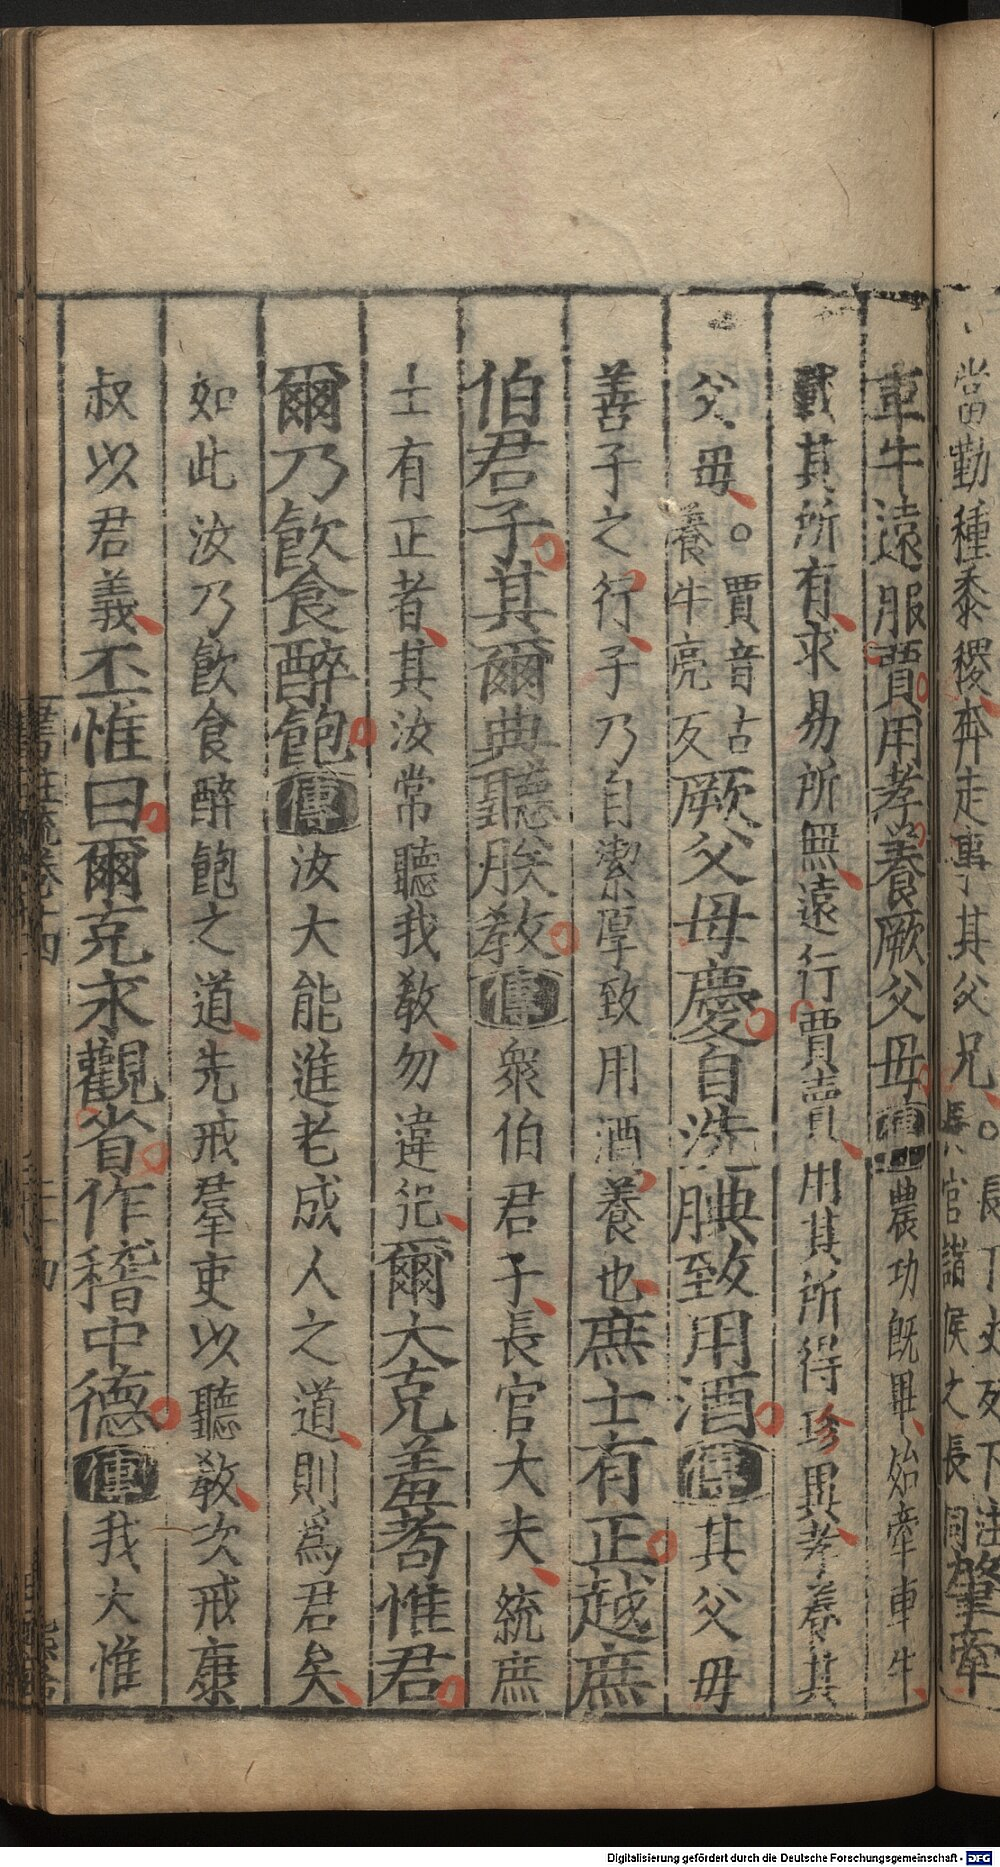 當勤種黍稷奔走事其父兄。長丁丈反下注長官諸侯之長同肇牽
車牛遠服賈用孝養厥父母傳農功既畢始牽車牛
載其所有求易所無遠行賈賣用其所得珍異孝養其
父母。賈音古養牛亮反厥父母慶自洗腆致用酒傳其父母
善子之行子乃自潔厚致用酒養也庶士有正越庶
伯君子其爾典聽朕教傳眾伯君子長官大夫統庶
士有正者其汝常聽我教勿違犯爾大克羞耇惟君
爾乃飲食醉飽傳汝大能進老成人之道則為君矣
如此汝乃飲食醉飽之道先戒羣吏以聽教次戒康
叔以君義丕惟曰爾克永觀省作稽中德傳我大惟
書註疏卷十四
Digitalisierung gefördert durch die Deutsche Forschungsgemeinschaft - DFG